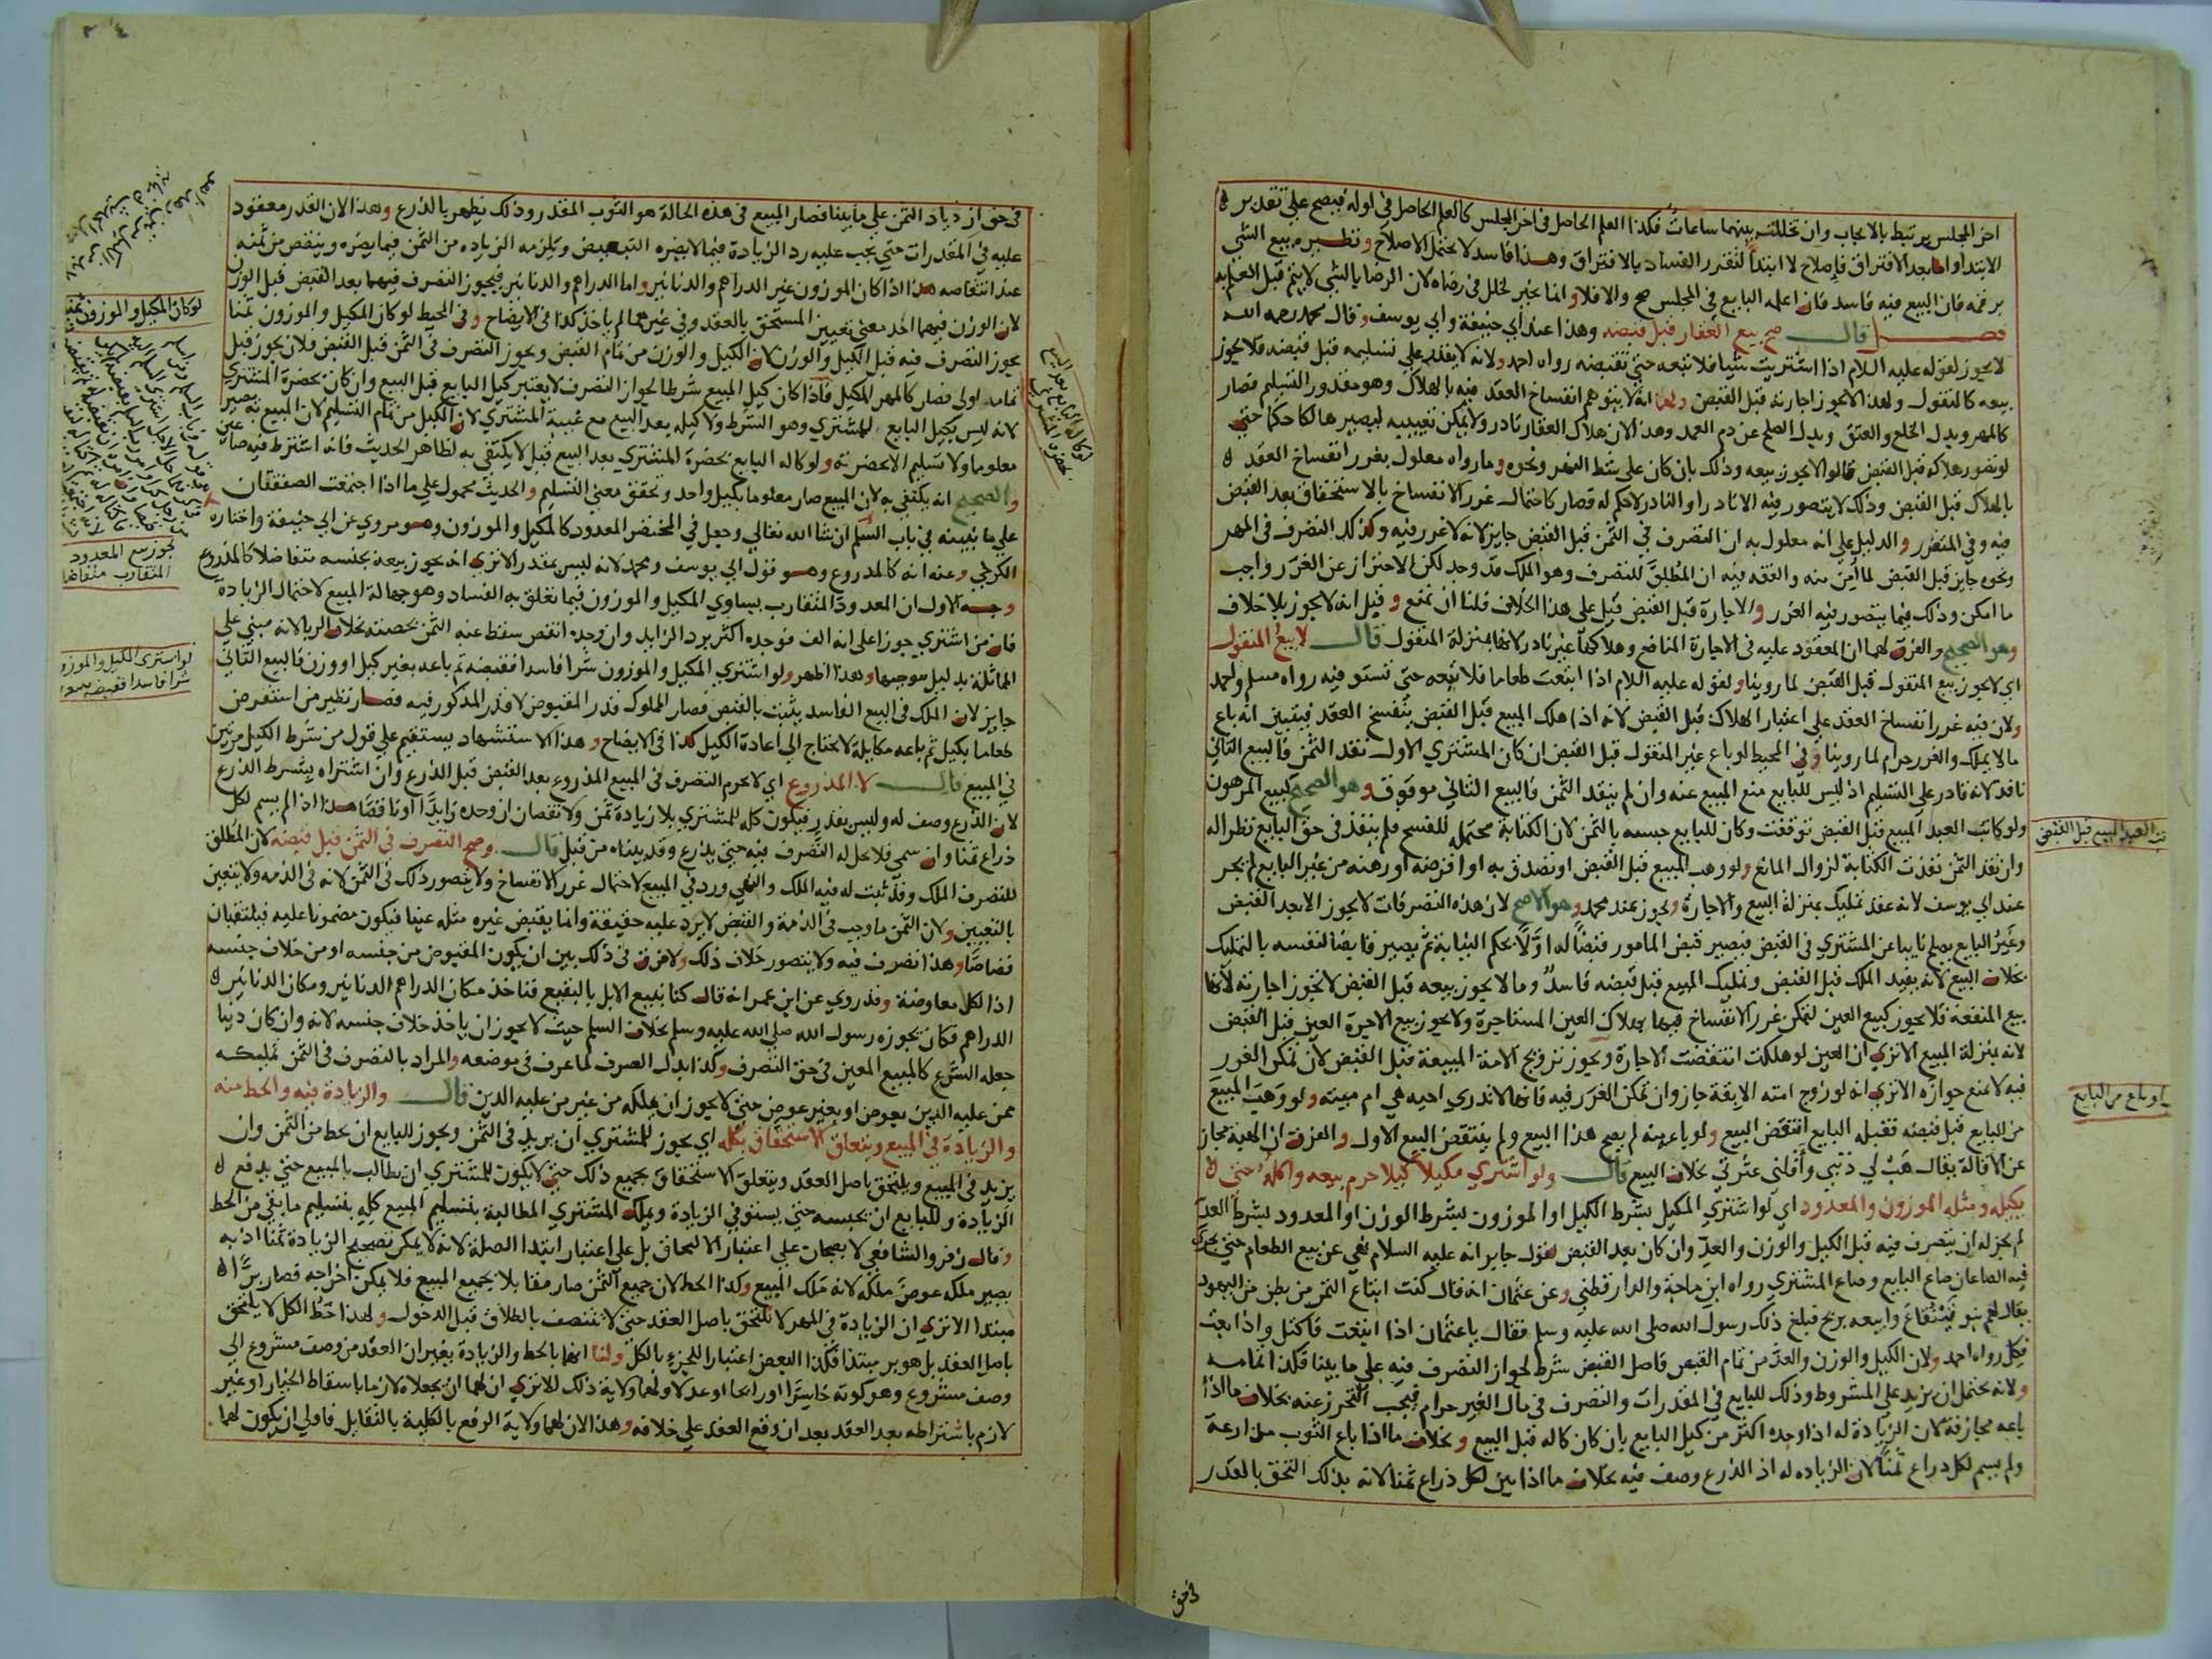 اخر المجلس يرتبط بالايجاب وان تخللت بينهما ساعات فكذا العلم الحاصل في اخر المجلس كالعلم الحاصل في اوله فيصح علي تقدير
الابتدا واما بعد الافتراق فاصلاح لا ابتدا لتقرر الفساد بالافتراق وهذا فاسد لا يحتمل الاصلاح ونظيره بيع الشي
برقمه فان البيع فيه فاسد فان اعلمه البايع في المجلس صح والا فلا وانما يخير لخلل في رضاه لان الرضا بالشي لا يتم قبل العلم به
فصل قال صح بيع العقار قبل قبضه وهذا عند ابي حنيفة وابي يوسف وقال محمد رحمه الله
لا يجوز لقوله عليه السلام اذا اشتريت شيا فلا تبعه حتي تقبضه رواه احمد ولانه لا يقدر علي تسليمه قبل قبضه فلا يجوز
بيعه كالمنقول ولهذا لا يجوز اجارته قبل القبض ولهما انه لا يتوهم انفساخ العقد فيه بالهلاك وهو مقدور التسليم فصار
كالمهر وبدل الخلع والعتق وبدل الصلح عن دم العمد وهذا لان هلاك العقار نادر ولا يمكن تعييبه ليصير هالكا حكما حتي
لو تصور هلاكه قبل القبض قالوا لا يجوز بيعه وذلك بان كان علي شط النهر ونحوه وما رواه معلول بغرر انفساخ العقد
بالهلاك قبل القبض وذلك لا يتصور فيه الا نادرا والنادر لا حكم له فصار كاحتمال غرر الانفساخ بالاستحقاق بعد القبض
فيه وفي المنقول والدليل علي انه معلول به ان التصرف في الثمن قبل القبض جايز لانه لا غرر فيه وكذلك التصرف في المهر
ونحوه جايز قبل القبض لما امن منه والفقه فيه ان المطلق للتصرف وهو الملك قد وجد لكن الاحتراز عن الغرر واجب
ما امكن وذلك فيما يتصور فيه الغرر والاجارة قبل القبض قيل علي هذا الخلاف فلنا ان نمنع وقيل انه لا يجوز بلا خلاف
وهو الصحيح والفرق لهما ان المعقود عليه في الاجارة المنافع وهلاكها غير نادر لانها بمنزلة المنقول قال لا بيع المنقول
اي لا يجوز بيع المنقول قبل القبض لما روينا ولقوله عليه السلام اذا ابتعت طعاما فلا تبعه حتي تستوفيه رواه مسلم واحمد
ولان فيه غرر انفساخ العقد علي اعتبار الهلاك قبل القبض لانه اذا هلك المبيع قبل القبض ينفسخ العقد فيتبين انه باع
ما لا يملك والغرر حرام لما روينا وفي المحيط لو باع غير المنقول قبل القبض ان كان المشتري الاول نقد الثمن فالبيع الثاني
نافذ لانه قادر علي التسليم اذ ليس للبايع منع المبيع عنه وان لم ينقد الثمن فالبيع الثاني موقوف وهو الصحيح كبيع المرهون
ولو كاتب العبد المبيع قبل القبض توقفت وكان للبايع حبسه بالثمن لان الكتابة محتمله للفسخ فلم ينفذ في حق البايع نظرا له
وان نقد الثمن نفذت الكتابة لزوال المانع ولو وهب المبيع قبل القبض او تصدق به او اقرضه او رهنه من غير البايع لم يجز
عند ابي يوسف لانه عقد تمليك بمنزلة البيع والاجارة ويجوز عند محمد وهو الاصح لان هذه التصرفات لا يجوز الا بعد القبض
وغير البايع يصلح نايبا عن المشتري في القبض فيصير قبض المامور قبضا له اولا بحكم النيابة ثم يصير قابضا لنفسه بالتمليك
بخلاف البيع لانه يفيد الملك قبل القبض وتمليك المبيع قبل قبضه فاسد وما لا يجوز بيعه قبل القبض لا تجوز اجارته لانها
بيع المنفعة فلا يجوز كبيع العين لتمكن غرر الانفساخ فيها بهلاك العين المستاجرة ولا يجوز بيع الاجرة العين قبل القبض
لانه بمنزلة المبيع الا تري ان العين لو هلكت انتقضت الاجارة ويجوز تزويج الامة المبيعة قبل القبض لان تمكن الغرر
فيه لا يمنع جوازه الا تري انه لو زوج امته الابقة جاز وان تمكن الغرر فيه فانها لا ندري احيه هي ام ميته ولو وهب المبيع
من البايع قبل قبضه فقبله البايع انتقض البيع ولو باعه منه لم يصح هذا البيع ولم ينتقض البيع الاول والفرق ان الهبة مجاز
عن الاقالة يقال هب لي ذنبي واقلني عثرتي بخلاف البيع قال ولو اشتري مكيلا كيلا حرم بيعه واكله حتي
يكيله ومثله الموزون والمعدود اي لو اشتري المكيل بشرط الكيل او الموزون بشرط الوزن او المعدود بشرط العد
لم يجز له ان يتصرف فيه قبل الكيل والوزن والعد وان كان بعد القبض لقول جابر انه عليه السلام نهي عن بيع الطعام حتي يجري
فيه الصاعان صاع البايع وصاع المشتري رواه ابن ماجة والدار قطني وعن عثمان انه قال كنت ابتاع التمر من بطن من اليهود
يقال لهم بنو قينقاع وابيعه بربح فبلغ ذلك رسول الله صلي الله عليه وسلم فقال يا عثمان اذا ابتعت فاكتل واذا بعت
فكل رواه احمد ولان الكيل والوزن والعد من تمام القبض فاصل القبض شرط لجواز التصرف فيه علي ما بينا فكذا تمامه
ولانه يحتمل ان يزيد علي المشروط وذلك للبايع في المقدرات والتصرف في مال الغير حرام فيجب التحرز عنه بخلاف ما اذا
باعه مجازفة لان الزيادة له اذا وجده اكثر من كيل البايع بان كان كاله قبل البيع وبخلاف ما اذا باع الثوب مذارعة
ولم يسم لكل ذراع ثمنا لان الزياده له اذ الذرع وصف فيه بخلاف ما اذا بين لكل ذراع ثمنا لانه بذلك التحق بالقدر
العبد المبيع قبل القبض
لو باع من البايع
في حق
في حق ازدياد الثمن علي ما بينا فصار المبيع في هذه الحالة هو الثوب المقدر وذلك يظهر بالذرع وهذا لان القدر معقود
عليه في المقدرات حتي يجب عليه رد الزيادة فيما لا يضره التبعيض ويلزمه الزياده من الثمن فيما يضره وينقص من ثمنه
عند انتقاصه هذا اذا كان الموزون غير الدراهم والدنانير واما الدراهم والدنانير فيجوز التصرف فيهما بعد القبض قبل الوزن
لان الوزن فيهما احد معني تعيين المستحق بالعقد وفي غيرهما لم ياخذ كذا في الايضاح وفي المحيط لو كان المكيل والموزون ثمنا
يجوز التصرف فيه قبل الكيل والوزن لان الكيل والوزن من تمام القبض ويجوز التصرف في الثمن قبل القبض فلان يجوز قبل
تمامه اولي فصار كالمهر المكيل فاذا كان كيل المبيع شرطا لجواز التصرف لا يعتبر كيل البايع قبل البيع وان كان بحضرة المشتري
لانه ليس بكيل البايع للمشتري وهو الشرط ولا كيله بعد البيع مع غيبة المشتري لان الكيل من تمام التسليم لان المبيع به يصير
معلوما ولا تسليم الا بحضرته ولو كاله البايع بحضرة المشتري بعد البيع قيل لا يكتفي به لظاهر الحديث فانه اشترط فيه صاعين
والصحيح انه يكتفي به لان المبيع صار معلوما بكيل واحد وتحقق معني التسليم والحديث محمول علي ما اذا اجتمعت الصفقتان
علي ما نبينه في باب السلم ان شا الله تعالي وجعل في المختصر المعدود كالمكيل والموزون وهو مروي عن ابي حنيفة واختاره
الكرخي وعنه انه كالمذروع وهو قول ابي يوسف ومحمد لانه ليس بمقدر الا تري انه يجوز بيعه بجنسه متفاضلا كالمذروع
وجه الاول ان المعدود المتقارب يساوي المكيل والموزون فيما يتعلق به الفساد وهو جهالة المبيع لاحتمال الزيادة
فان من اشتري جوزا علي انه الف فوجده اكثر يرد الزايد وان وجده انقص سقط عنه الثمن بحصته بخلاف الربا لانه مبني علي
المماثلة بدليل موجبها وهذا اظهر ولو اشتري المكيل والموزون شرا فاسدا فقبضه ثم باعه بغير كيل او وزن فالبيع الثاني
جايز لان الملك في البيع الفاسد يثبت بالقبض فصار المملوك قدر المقبوض لا قدر المذكور فيه فصار نظير من استقرض
طعاما بكيل ثم باعه مكايلة لا يحتاج الي اعادة الكيل كذا في الايضاح وهذا الاستشهاد يستقيم علي قول من شرط الكيل مرتين
في المبيع قال لا المذروع اي لا يحرم التصرف في المبيع المذروع بعد القبض قبل الذرع وان اشتراه بشرط الذرع
لان الذرع وصف له وليس بقدر فيكون كله للمشتري بلا زيادة ثمن ولا نقصان ان وجده زايدا او ناقصا هذا اذا لم يسم لكل
ذراع ثمنا وان سمي فلا يحل له التصرف فيه حتي يذرع وقد بيناه من قبل قال وصح التصرف في الثمن قبل قبضه لان المطلق
للتصرف الملك وقد ثبت له فيه الملك والنهي ورد في المبيع لاحتمال غرر الانفساخ ولا يتصور ذلك في الثمن لانه في الذمه ولا يتعين
بالتعيين ولان الثمن ما وجب في الذمة والقبض لا يرد عليه حقيقة وانما يقبض غيره مثله عينا فيكون مضمونا عليه فيلتقيان
قصاصا وهذا تصرف فيه ولا يتصور خلاف ذلك ولا فرق في ذلك بين ان يكون المقبوض من جنسه او من خلاف جنسه
اذ الكل معاوضة وقد روي عن ابن عمر انه قال كنا نبيع الابل بالبقيع فناخذ مكان الدراهم الدنانير ومكان الدنانير
الدراهم فكان يجوزه رسول الله صلي الله عليه وسلم بخلاف السلم حيث لا يجوز ان ياخذ خلاف جنسه لانه وان كان دينا
جعله الشرع كالمبيع المعين في حق التصرف وكذا بدل الصرف لما عرف في موضعه والمراد بالتصرف في الثمن تمليكه
ممن عليه الدين بعوض او بغير عوض حتي لا يجوز ان يملكه من غير من عليه الدين قال والزيادة فيه والحط منه
والزيادة في المبيع ويتعلق الاستحقاق بكله اي يجوز للمشتري ان يزيد في الثمن ويجوز للبايع ان يحط من الثمن وان
يزيد في المبيع ويلتحق باصل العقد ويتعلق الاستحقاق بجميع ذلك حتي لا يكون للمشتري ان يطالب بالمبيع حتي يدفع
الزيادة وللبايع ان يحبسه حتي يستوفي الزيادة ويملك المشتري المطالبة بتسليم المبيع كله بتسليم ما بقي من الحط
وقال زفر والشافعي لا يصحان علي اعتبار الالتحاق بل علي اعتبار ابتدا الصلة لانه لا يمكن تصحيح الزيادة ثمنا اذ به
يصير ملكه عوض ملكه لانه ملك المبيع وكذا الحط لان جميع الثمن صار مقابلا بجميع المبيع فلا يمكن اخراجه فصار برا
مبتدا الا تري ان الزيادة في المهر لا تلتحق باصل العقد حتي لا تتنصف بالطلاق قبل الدخول ولهذا حط الكل لا يلتحق
باصل العقد بل هو بر مبتدا فكذا البعض اعتبارا للجزء بالكل ولنا انهما بالحط والزيادة يغيران العقد من وصف مشروع الي
وصف مشروع وهو كونه خاسرا او رابحا او عدلا ولهما ولاية ذلك الا تري ان لهما ان يجعلاه لازما باسقاط الخيار او غير
لازم باشتراطه بعد العقد بعد ان وقع العقد علي خلافه وهذا لان لهما ولاية الرفع بالكلية بالتقايل فاولي ان يكون لهما
لو كان المكيل والموزون ثمنا
لو كاله البايع بعد البيع
بحضرة المشتري
يجوز بيع المعدود
المتقارب متفاضلا
لو اشتري المكيل والموزون
شرا فاسدا فقبضه ثم